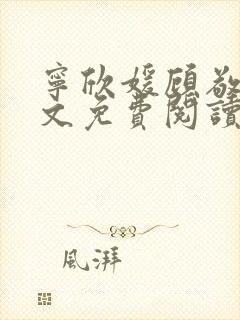 寧欣媛顧敬
文免費閱讀
風湃